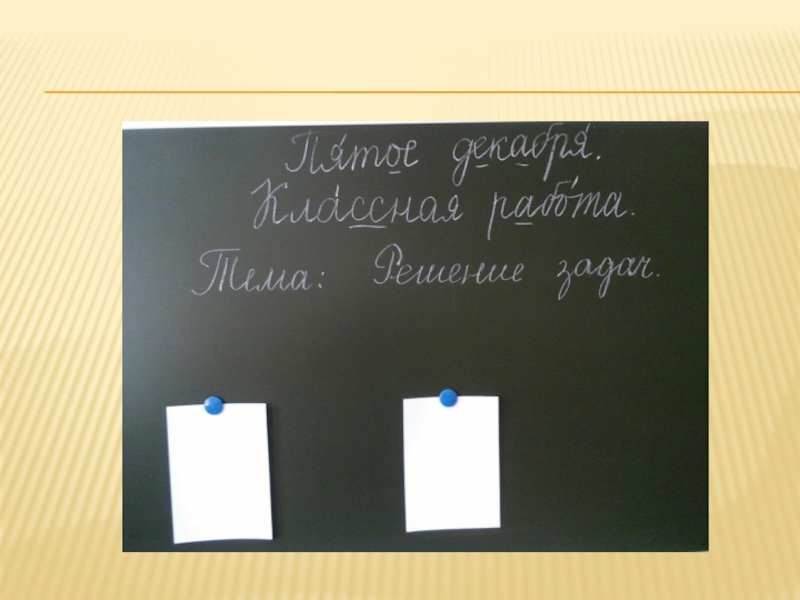 Пя́тое декабря́.
Кла́ссная рабо́та.
Тема: Решение задач.